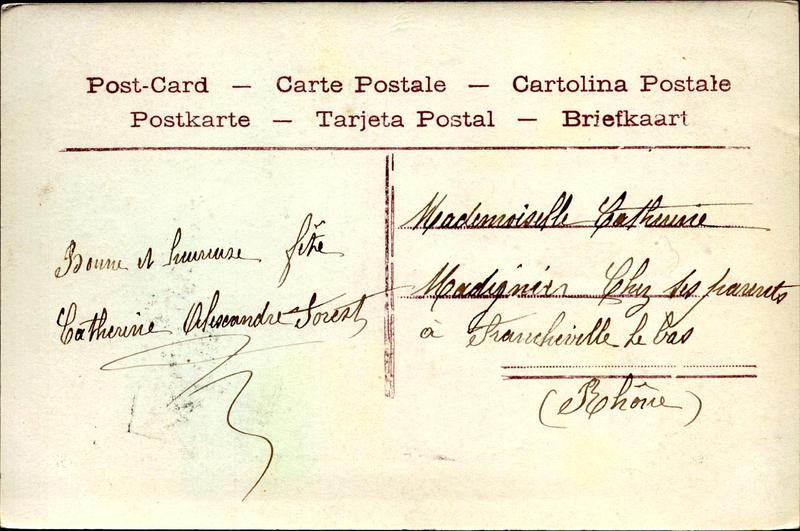 Post-Card — Carte Postale — Cartolina Postale
Postkarte — Tarjeta Postal — Briefkaart
Bonne et heureuse fête
Catherine Alexandre Forest
Mademoiselle Catherine
Madignier Chez ses parents
à Francheville le bas
(Rhône)